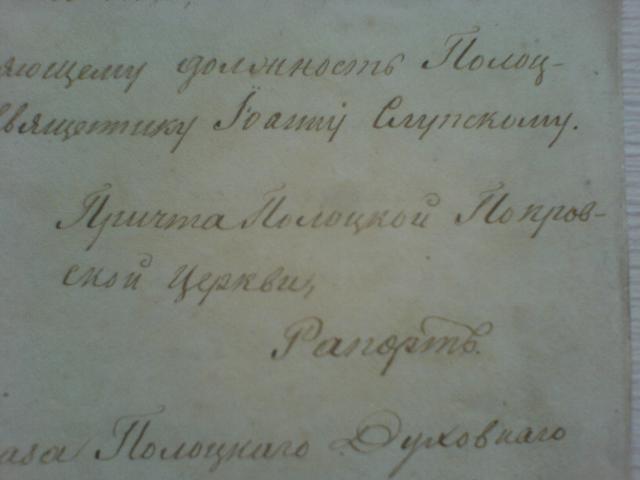 яющему должность Полоц-
священнику Іоанну Слупскому.
Причта Полоцкой Покров-
ской церкви,
Рапортъ.
каза Полоцкаго Духовнаго